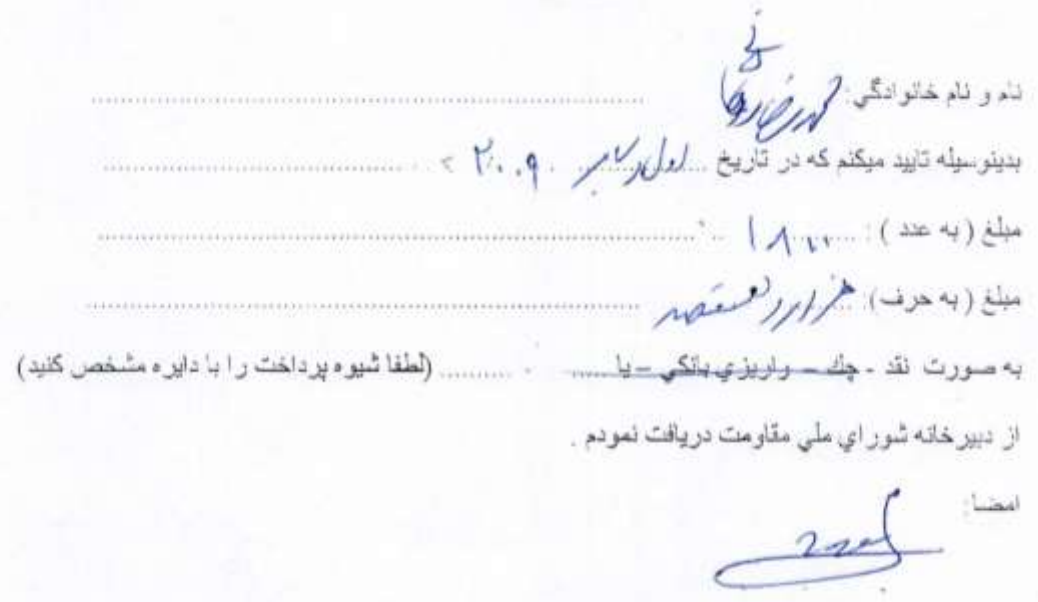 نام و نام خانوادگي: محمدرضا روحاني
بدينوسيله تاييد ميكنم كه در تاريخ ..... اول دسامبر ۲۰۰۹ .....
مبلغ ( به عدد ) : ..... ۱۸۰۰ .....
مبلغ ( به حرف): ..... هزار و هشتصد .....
به صورت نقد - چك – واريزي بانكي – يا ..... (لطفا شيوه پرداخت را با دايره مشخص كنيد)
از دبيرخانه شوراي ملي مقاومت دريافت نمودم .
امضا: